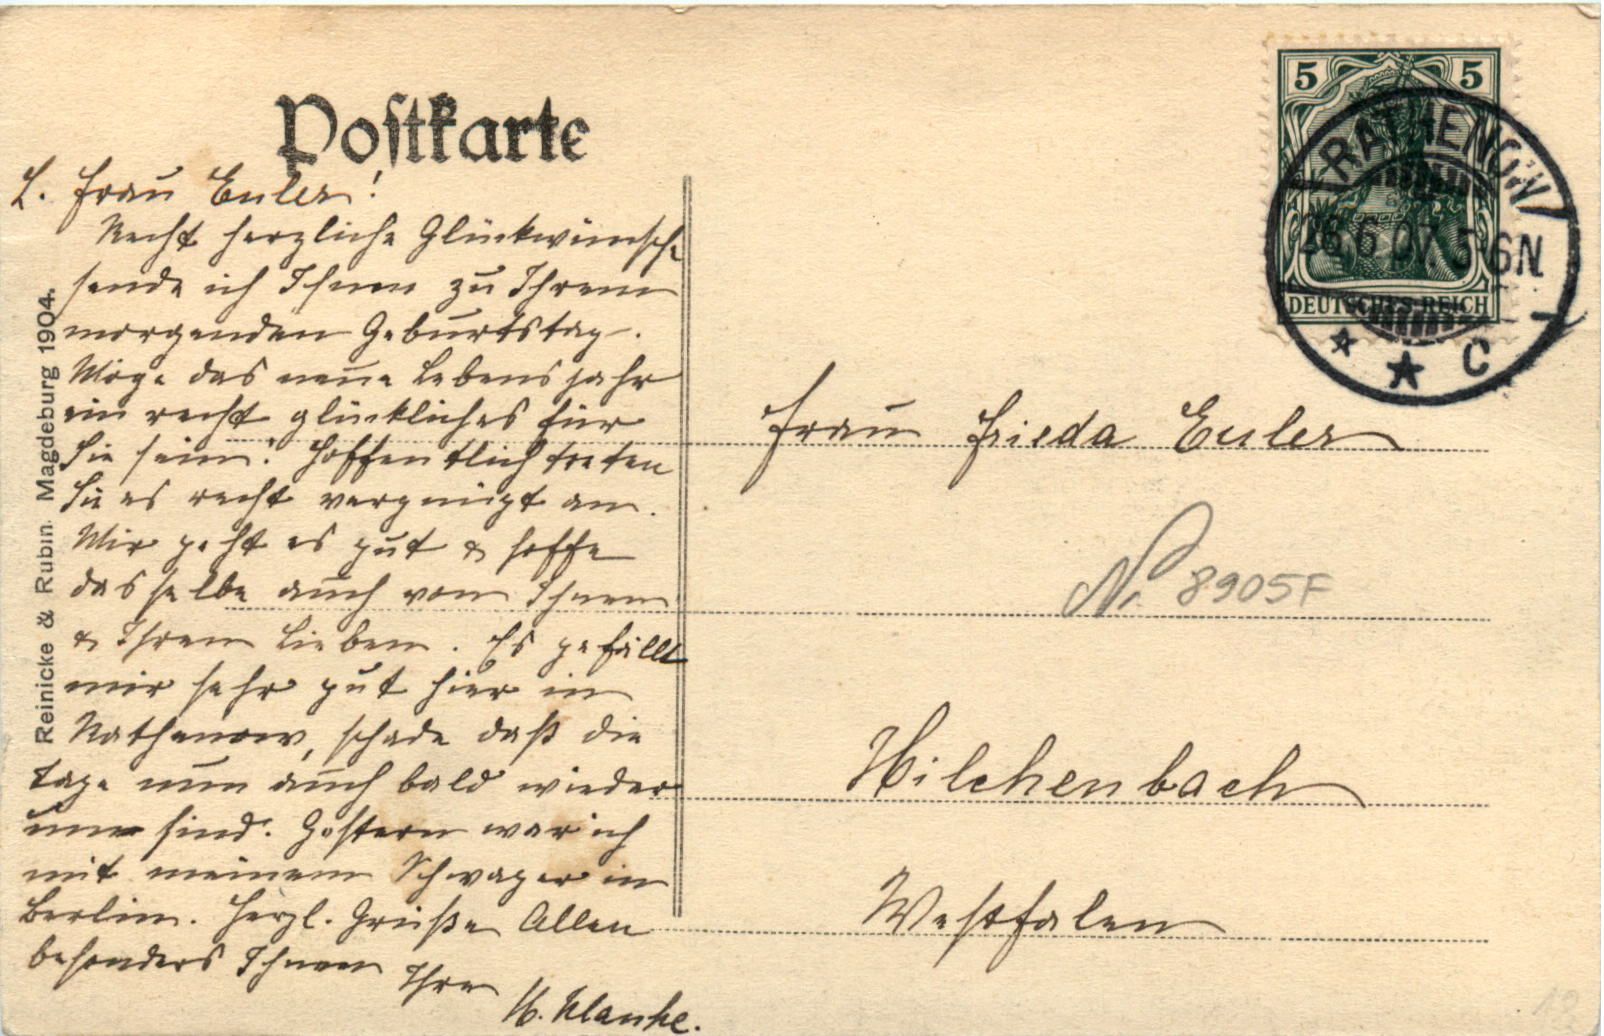 Postkarte
L. Frau Euler!
Recht herzliche Glückwünsche
sende ich Ihnen zu Ihrem
morgenden Geburtstag.
Möge das neue Lebensjahr
ein recht glückliches für
Sie sein! Hoffentlich treten
Sie es recht vergnügt an.
Mir geht es gut & hoffe
dasselbe auch von Ihnen
& Ihren Lieben. Es gefällt
mir sehr gut hier in
Rathenow, schade daß die
Tage nun auch bald wieder
um sind. Gestern war ich
mit meinem Schwager in
Berlin. Herzl. Grüße Allen
besonders Ihnen Ihre
Reinicke & Rubin. Magdeburg 1904.
5 5
DEUTSCHES REICH
RATHENOW
26.6.07. 5-6N.
* * C
Frau Frieda Euler
N. 8905F
Hilchenbach
Westfalen